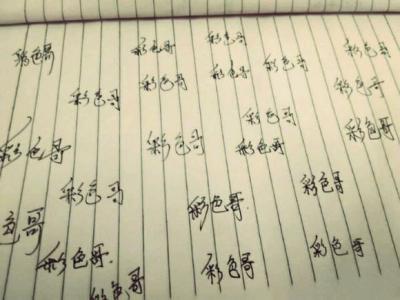 彩色哥 彩色哥 彩色哥 彩色哥
彩色哥 彩色哥 彩色哥 彩色哥 彩色哥
彩色哥 彩色哥
彩色哥 彩色哥 彩色哥
彩色哥 彩色哥
彩色哥.
色哥
彩色哥. 彩色哥 彩色哥
彩色哥